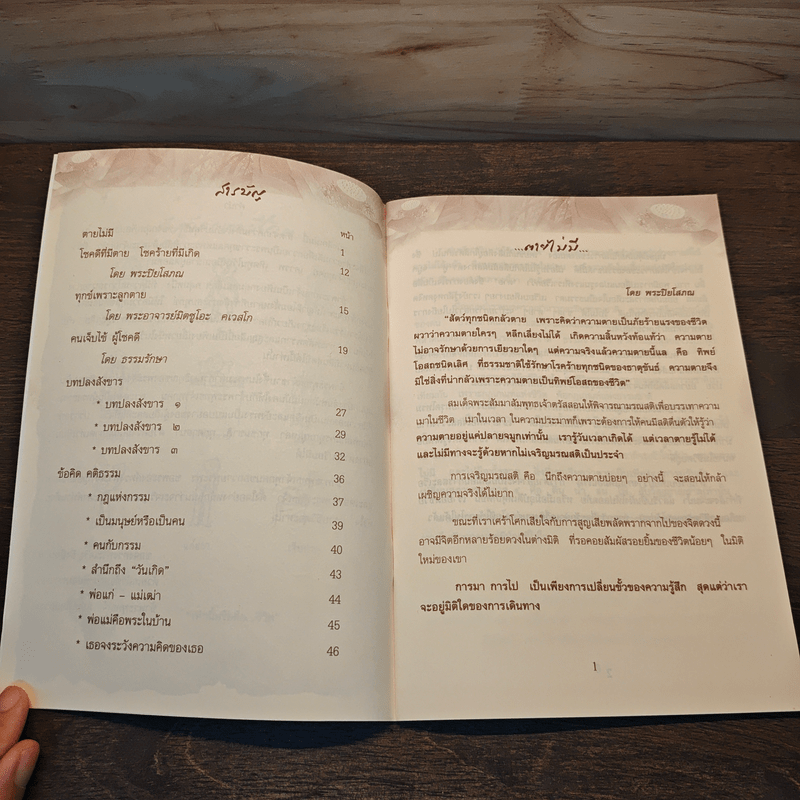 สารบัญ
ตายไม่มี หน้า
โชคดีที่มีตาย โชคร้ายที่มีเกิด 1
โดย พระปิยโสภณ 12
ทุกข์เพราะลูกตาย 15
โดย พระอาจารย์มิตซูโอะ คเวสโก
คนเจ็บไข้ ผู้โชคดี 19
โดย ธรรมรักษา
บทปลงสังขาร
* บทปลงสังขาร ๑ 27
* บทปลงสังขาร ๒ 29
* บทปลงสังขาร ๓ 32
ข้อคิด คติธรรม 36
* กฎแห่งกรรม 37
* เป็นมนุษย์หรือเป็นคน 39
* คนกับกรรม 40
* สำนึกถึง "วันเกิด" 43
* พ่อแก่ – แม่เฒ่า 44
* พ่อแม่คือพระในบ้าน 45
* เธอจงระวังความคิดของเธอ 46
...ตายไม่มี...
โดย พระปิยโสภณ
"สัตว์ทุกชนิดกลัวตาย เพราะคิดว่าความตายเป็นภัยร้ายแรงของชีวิต
ผวาว่าความตายใครๆ หลีกเลี่ยงไม่ได้ เกิดความสิ้นหวังท้อแท้ว่า ความตาย
ไม่อาจรักษาด้วยการเยียวยาใดๆ แต่ความจริงแล้วความตายนี้แล คือ ทิพย์
โอสถชนิดเลิศ ที่ธรรมชาติใช้รักษาโรคร้ายทุกชนิดของธาตุขันธ์ ความตายจึง
มิใช่สิ่งที่น่ากลัวเพราะความตายเป็นทิพย์โอสถของชีวิต"
สมเด็จพระสัมมาสัมพุทธเจ้าตรัสสอนให้พิจารณามรณสติเพื่อบรรเทาความ
เมาในชีวิต เมาในเวลา ในความประมาทก็เพราะต้องการให้คนมีสติตื่นตัวให้รู้ว่า
ความตายอยู่แค่ปลายจมูกเท่านั้น เรารู้วันเวลาเกิดได้ แต่เวลาตายรู้ไม่ได้
และไม่มีทางจะรู้ด้วยหากไม่เจริญมรณสติเป็นประจำ
การเจริญมรณสติ คือ นึกถึงความตายบ่อยๆ อย่างนี้ จะสอนให้กล้า
เผชิญความจริงได้ไม่ยาก
ขณะที่เราเศร้าโศกเสียใจกับการสูญเสียพลัดพรากจากไปของจิตดวงนี้
อาจมีจิตอีกหลายร้อยดวงในต่างมิติ ที่รอคอยสัมผัสรอยยิ้มของชีวิตน้อยๆ ในมิติ
ใหม่ของเขา
การมา การไป เป็นเพียงการเปลี่ยนขั้วของความรู้สึก สุดแต่ว่าเรา
จะอยู่มิติใดของการเดินทาง
1